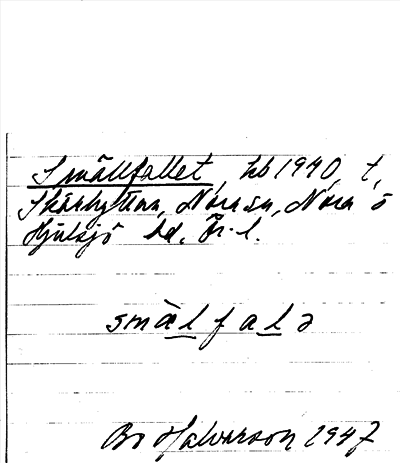 Smällfallet, hb 1940, t,
Skärhyttan, Nora sn, Nora o
Hjulsjö bd, Ör. l.
smälfalə
Bo Halvarson 1947